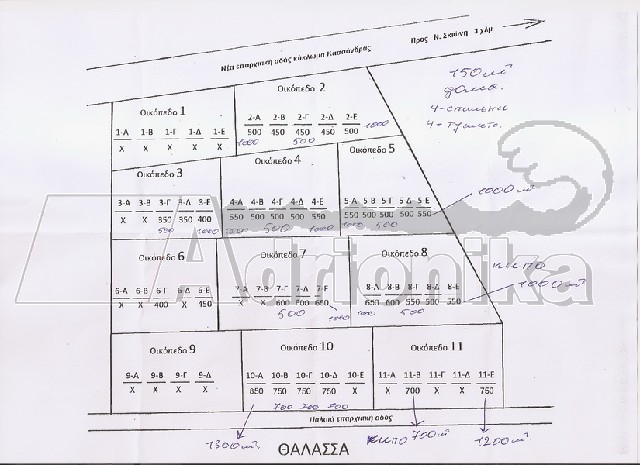 Νέα επαρχιακή οδός κύκλωμα Κασσάνδρας
Προς Ν. Σκιώνη 1 χλμ
150 м²
4-спальни
Οικόπεδο 1
1-Α 1-Β 1-Γ 1-Δ 1-Ε
Χ Χ Χ Χ Χ
Οικόπεδο 2
2-Α 2-Β 2-Γ 2-Δ 2-Ε
500 450 450 450 500
1000 500 1000
Οικόπεδο 3
3-Α 3-Β 3-Γ 3-Δ 3-Ε
Χ Χ 350 350 400
500 1000
Οικόπεδο 4
4-Α 4-Β 4-Γ 4-Δ 4-Ε
550 500 500 500 550
1000 500 1000
Οικόπεδο 5
5-Α 5-Β 5-Γ 5-Δ 5-Ε
550 500 500 500 550
500
1000 м²
Adrionika
Οικόπεδο 6
6-Α 6-Β 6-Γ 6-Δ 6-Ε
Χ Χ 400 Χ 450
Οικόπεδο 7
7-Α 7-Β 7-Γ 7-Δ 7-Ε
Χ Χ 600 600 650
500 1000
Οικόπεδο 8
8-Α 8-Β 8-Γ 8-Δ 8-Ε
650 600 550 500 550
500
1000 м²
Οικόπεδο 9
9-Α 9-Β 9-Γ 9-Δ
Χ Χ Χ Χ
Οικόπεδο 10
10-Α 10-Β 10-Γ 10-Δ 10-Ε
850 750 750 750 Χ
700 700 700
Οικόπεδο 11
11-Α 11-Β 11-Γ 11-Δ 11-Ε
Χ 700 Χ Χ 750
Παλαιά επαρχιακή οδός
1300 м²
700 м²
1200 м²
ΘΑΛΑΣΣΑ